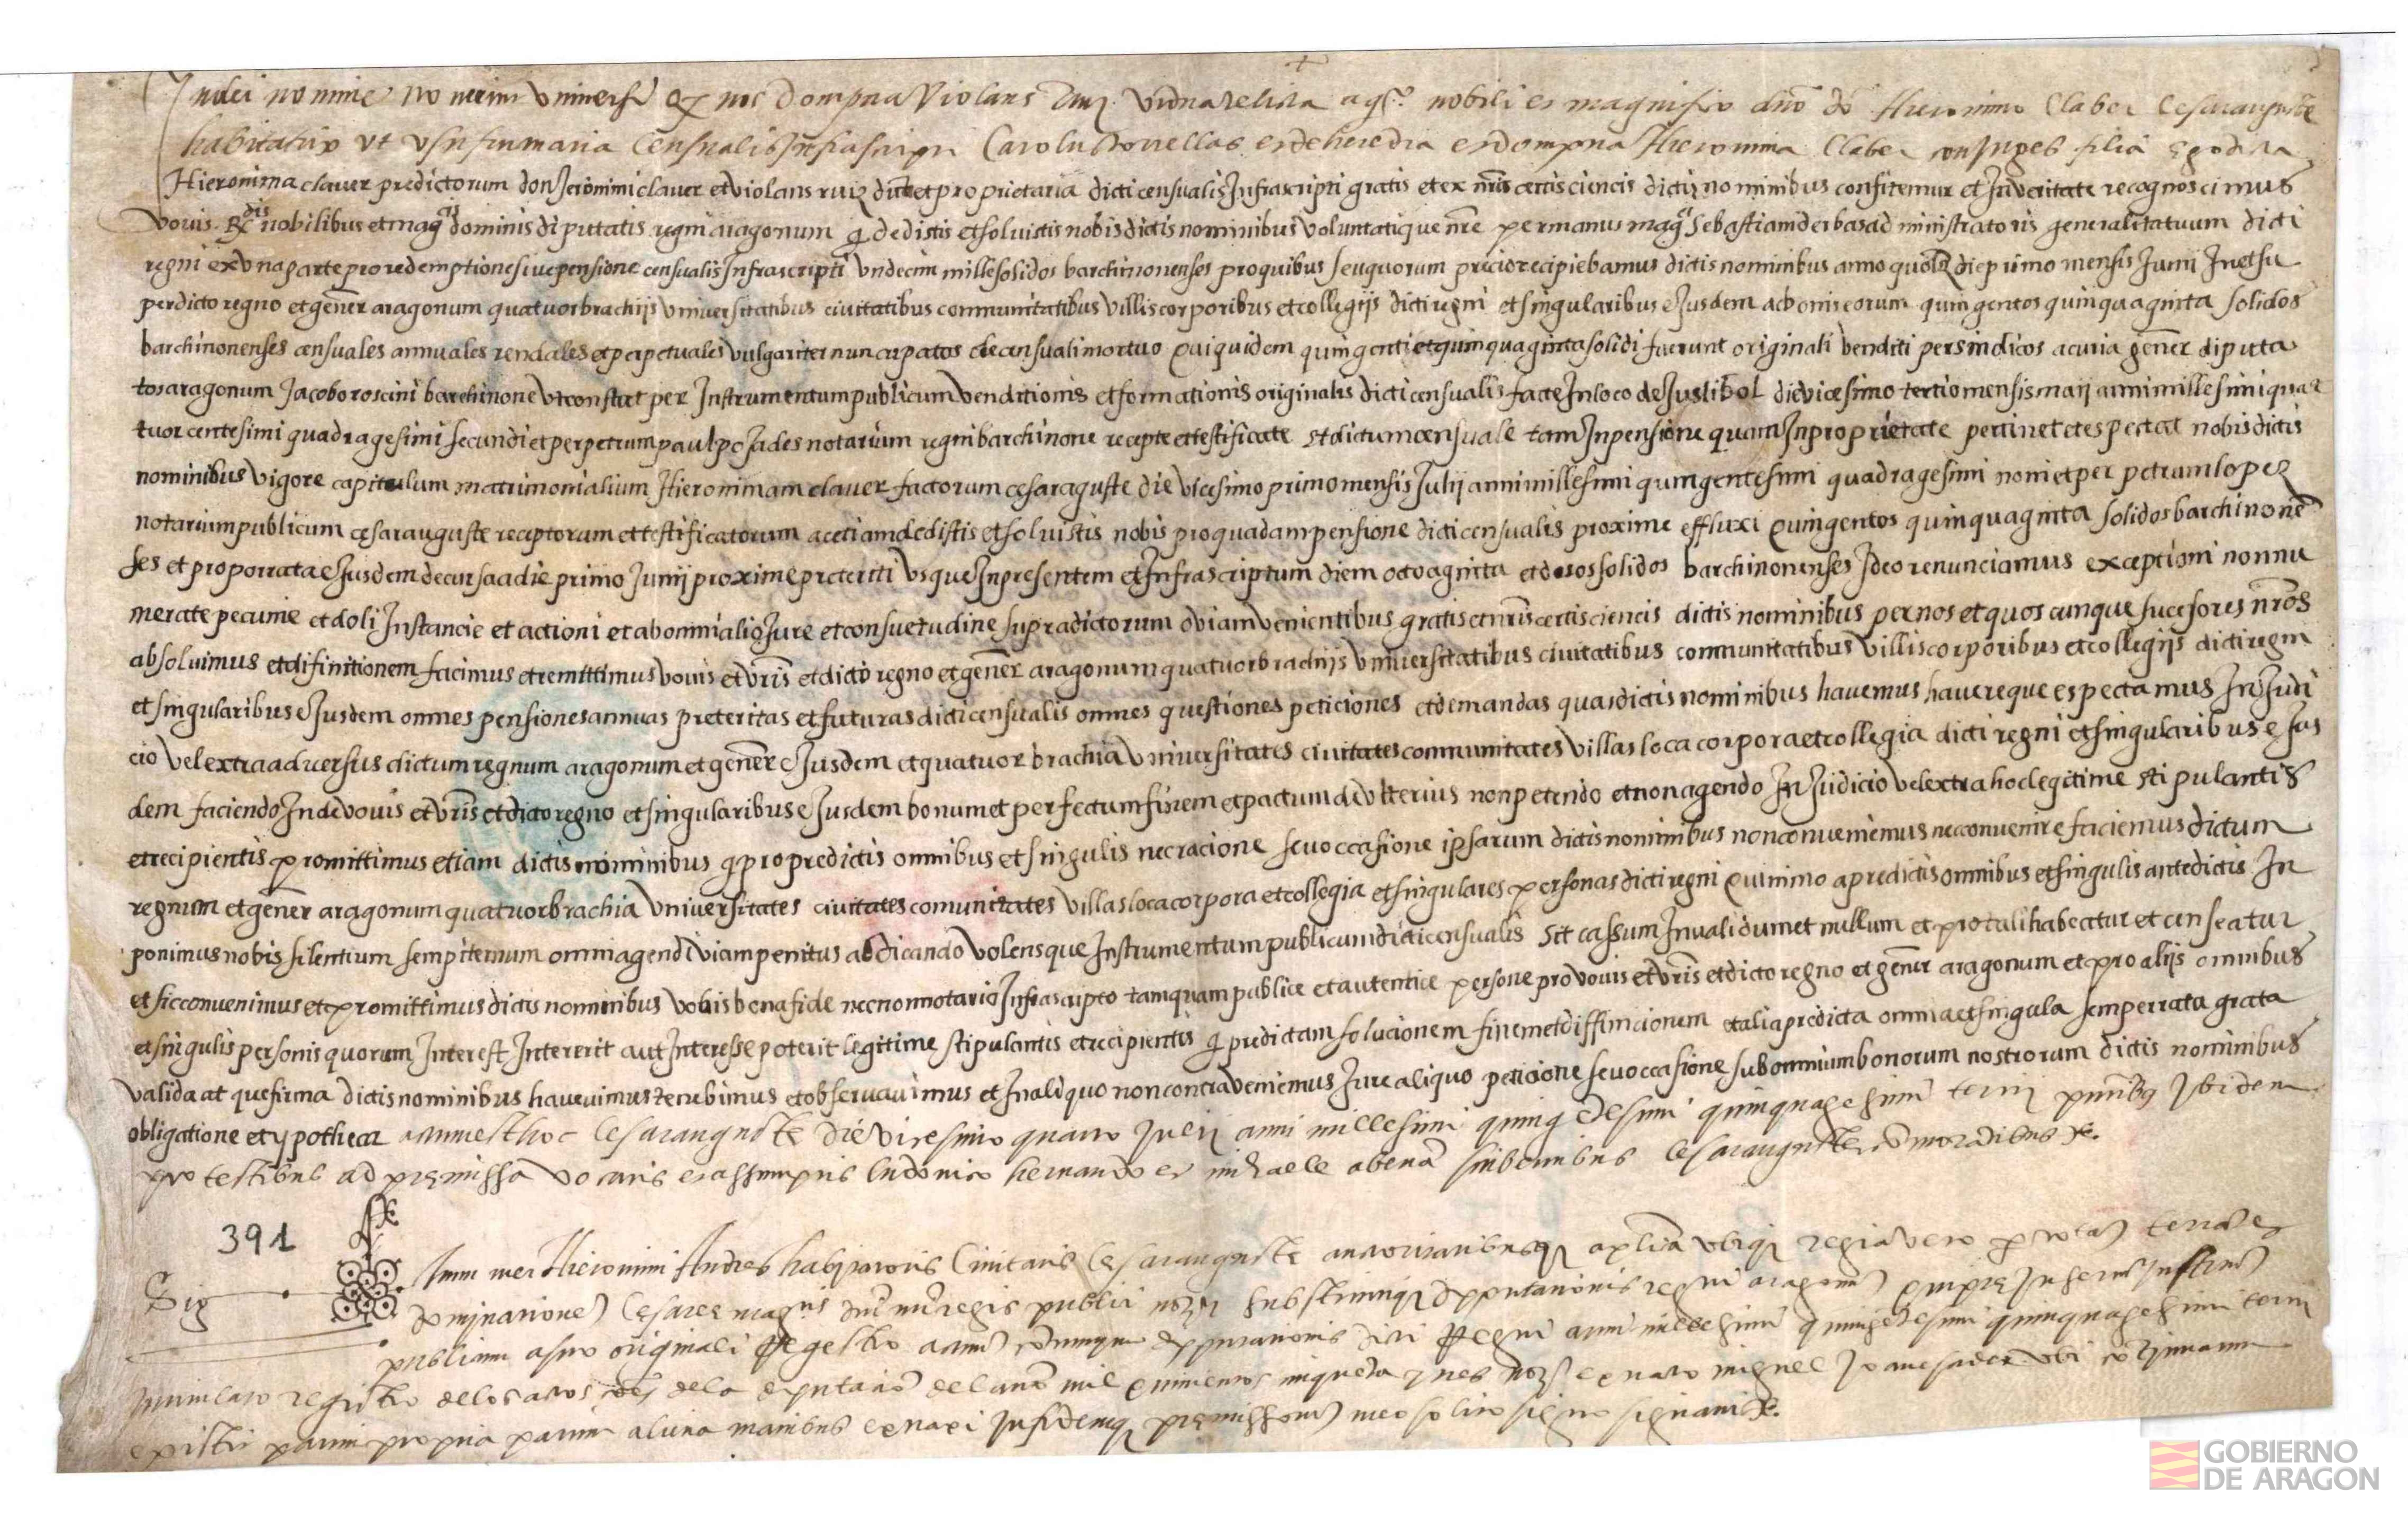 In dei nomine Noverint universi q nos Dompna Violans Ruiz vidua relicta nobili et magnifico dño dõ Hieronimo Claber Cesarauguste
habitatrix ut usufrumaria Censualis Infrascripti Carolus Torrellas et de heredia et dompna Hieronima Claber conjuges filia ego dicta
Hieronima claver predictorum don Jeronimi claver et violans ruiz dictet proprietaria dicti censualis Infrascripti gratis et ex nr̃is certis ciencis dictis nominibus confitemur et In veritate recognoscimus
vovis Rdis nobilibus et magcis dominis diputatis regni aragonum q dedistis et soluistis nobis dictis nominibus voluntatique nr̃e per manus magci Sebastiani derbas administratoris generalitatuum dicti
regni ex una parte pro redemptione sive pensione censualis Infrascripti undecim mille solidos barchinonenses pro quibus seu quorum precio recipiebamus dictis nominibus anno quolz die primo mensis Junii In et su
per dicto regno et gener̃ aragonum quatuor brachijs universitatibus civitatibus communitatibus villis corporibus et collegijs dicti regni et singularibus eJusdem ac bonis eorum quingentos quinquaginta solidos
barchinonenses censuales annuales rendales et perpetuales vulgariter nuncupatos de censuali mortuo quiquidem quingenti et quinquaginta solidi fuerunt originali venditi per sindicos a curia gener̃ diputa
tos aragonum Jacobo roscini barchinone ut constat per Instrumentum publicum venditionis et formationis originalis dicti censualis facte In loco de Juslibol die vicesimo tertio mensis maij anni millesimi quat
tuor centesimi quadragesimi secundi et per petrum paul posades notarium regni barchinone recepte et testificate et dictum censuale tam In pensione quam In proprietate pertinet et espectat nobis dictis
nominibus vigore capitulum matrimonialium Hieronimam claver factorum cesaraguste die vicesimo primo mensis Julij anni millesimi quingentesimi quadragesimi noni et per petrum lopez
notarium publicum cesarauguste receptorum et testificatorum ac etiam dedistis et soluistis nobis pro quadam pensione dicti censualis proxime effluxi quingentos quinquaginta solidos barchinonẽ
ses et pro porrata eJusdem decursa a die primo Junij proxime preteriti usque In presentem et Infrascriptum diem octoaginta et dosos solidos barchinonenses Ideo renunciamus exceptioni non nu
merate pecunie et doli Instancie et actioni et ab omni alio Jure et consuetudine supradictorum oviam venientibus gratis et nr̃is certis ciencis dictis nominibus per nos et quos cunque sucesores nr̃os
absoluimus et difinitionem facimus et remittimus vovis et vr̃is et dicto regno et gener̃ aragonum quatuor brachijs universitatibus civitatibus communitatibus villis corporibus et collegijs dicti regni
et singularibus eJusdem omnes pensiones annuas preteritas et futuras dicti censualis omnes questiones peticiones et demandas quas dictis nominibus havemus havereque espectamus In Judi
cio vel extra adversus dictum regnum aragonum et gener̃ eJusdem et quatuor brachia universitates civitates communitates villas loca corpora et collegia dicti regni et singularibus eJus
dem faciendo Inde vovis et vr̃is et dicto regno et singularibus eJusdem bonum et perfectum finem et pactum de ulterius non petendo et non agendo In Judicio vel extra hoc legitime stipulantis
et recipientis promittimus etiam dictis nominibus q pro predictis omnibus et singulis nec racione seu occasione ipsarum dictis nominibus non convenimus nec convenire faciemus dictum
regnum et gener̃ aragonum quatuor brachia universitates civitates comunitates villas loca corpora et collegia et singulares personas dicti regni quinimo a predictis omnibus et singulis antedictis In
ponimus nobis silentium sempiternum omni agendi viam penitus abdicando volensque Instrumentum publicum dicti censualis sit cassum Invalidum et nullum et pro tali habeatur et censeatur
et sic convenimus et promittimus dictis nominibus vobis bona fide necnon notario Infrascripto tamquam publice et autentice persone pro vovis et vr̃is et dicto regno et gener̃ aragonum et pro alijs omnibus
et singulis personis quorum Interest Intererit aut Interesse poterit legitime stipulantis et recipientis q predictam solucionem finem et diffincionem et alia predicta omnia et singula semper rata grata
valida atque firma dictis nominibus havevimus tenebimus et observavimus et In aliquo non contraveniemus Jure aliquo peticione seu occasione sub omnium bonorum nostrorum dictis nominibus
obligatione et ypothecar est hoc Cesarauguste die vicesimo quarto Julij anni millesimi quingẽtesimi quinquagesimi tertij pñtibus Ibidem
pro testibus ad premissa vocatis et assumptis ludovico hernando et michaele abenã scriboribus Cesarauguste cõmorãtibus
391
Sig num mei Hieronimi Andres habitatoris Civitatis Cesarauguste auctoritatibusq aplica ubiq regia vero per totã terrã et
dominationẽ Cesaree magtis dñi nr̃i regis publici notrij substitutiq diputationis regni aragonũ qui pre Inserũ Instrũ
publicum a suo originali Regestro actuũ comunium diputationis dicti Regni anni millesimi quingẽtesimi quinquagesimi tertij
Intitulato registro de los actos comũ de la diputacion del anno mil quinientos cinquenta y tres notrio miguel Joan esader ubi cõtinuatum
existit partim propria partim aliena manibus extraxi In fidemq premissorũ meo solito signo signavi
GOBIERNO
DE ARAGON